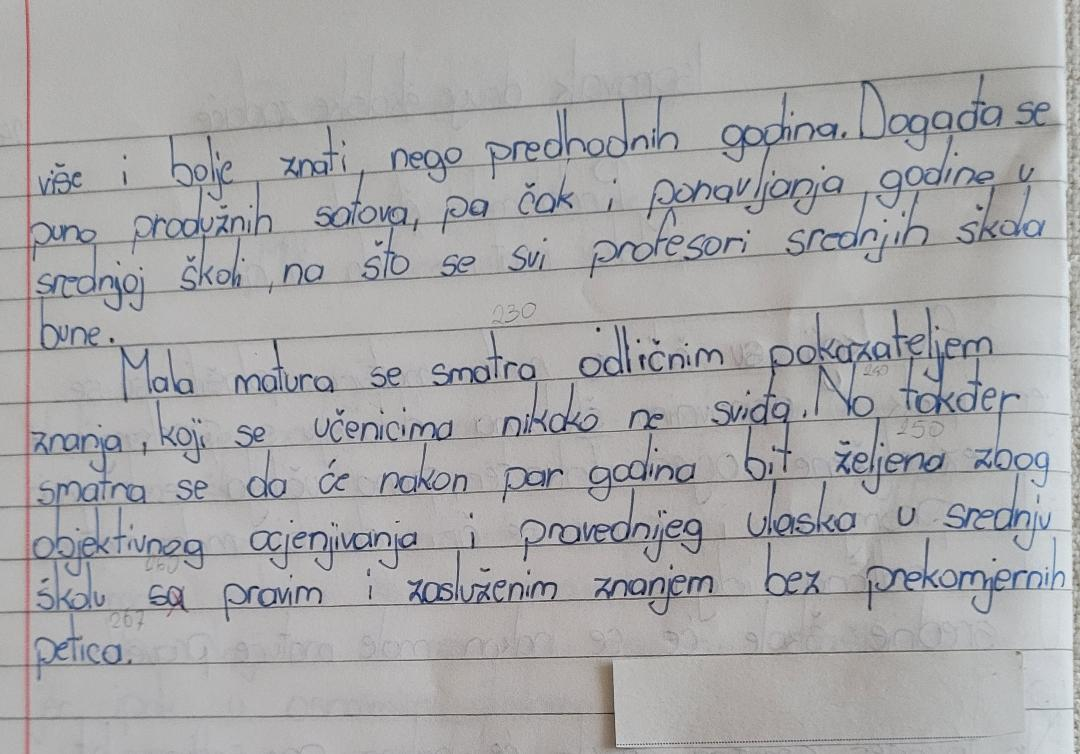 više i bolje znati, nego predhodnih godina. Događa se
puno produžnih satova, pa čak i ponavljanja godine u
srednjoj školi, na što se svi profesori srednjih škola
bune.
230
Mala matura se smatra odličnim pokazateljem
240
znanja, koji se učenicima nikako ne sviđa. No takđer
250
smatra se da će nakon par godina bit željena zbog
objektivnog ocjenjivanja i pravednijeg ulaska u srednju
260
školu sa pravim i zasluženim znanjem bez prekomjernih
267
petica.